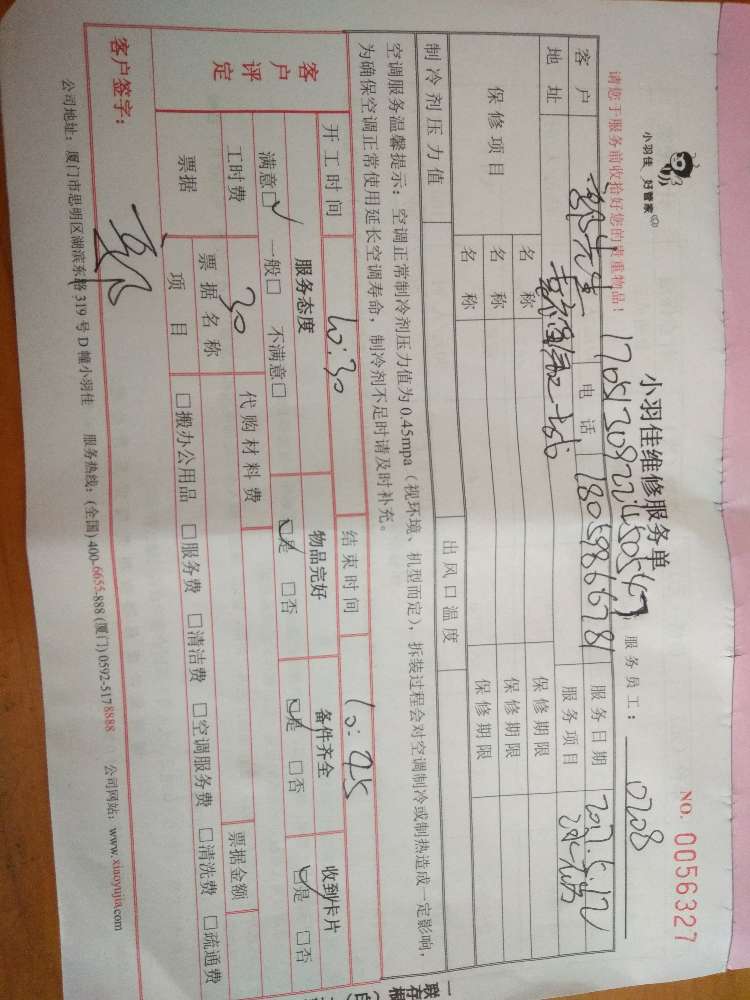 小羽佳 好管家
小羽佳维修服务单
NO. 0056327
请您于服务前收拾好您的贵重物品！
服务员工： 0208
客户 先生 电话 18059866781 服务日期 2017.5.12
地址 服务项目
保修项目 名称 保修期限
名称 保修期限
名称 保修期限
制冷剂压力值 出风口温度
空调服务温馨提示：空调正常制冷剂压力值为0.45mpa（视环境、机型而定），拆装过程会对空调制冷或制热造成一定影响，
为确保空调正常使用延长空调寿命，制冷剂不足时请及时补充。
开工时间 10:30 结束时间 10:45
客户评定 服务态度 物品完好 备件齐全 收到卡片
满意☑ 一般□ 不满意□ ☑是 □否 ☑是 □否 ☑是 □否
工时费 30 代购材料费
票据 票据名称 票据金额
项目 □搬办公用品 □服务费 □清洁费 □空调服务费 □清洗费 □疏通费
客户签字：
公司地址：厦门市思明区湖滨东路319号D幢小羽佳 服务热线：(全国)400-6655-888 (厦门)0592-5178888 公司网站：www.xiaoyujia.com
一
联
存
根